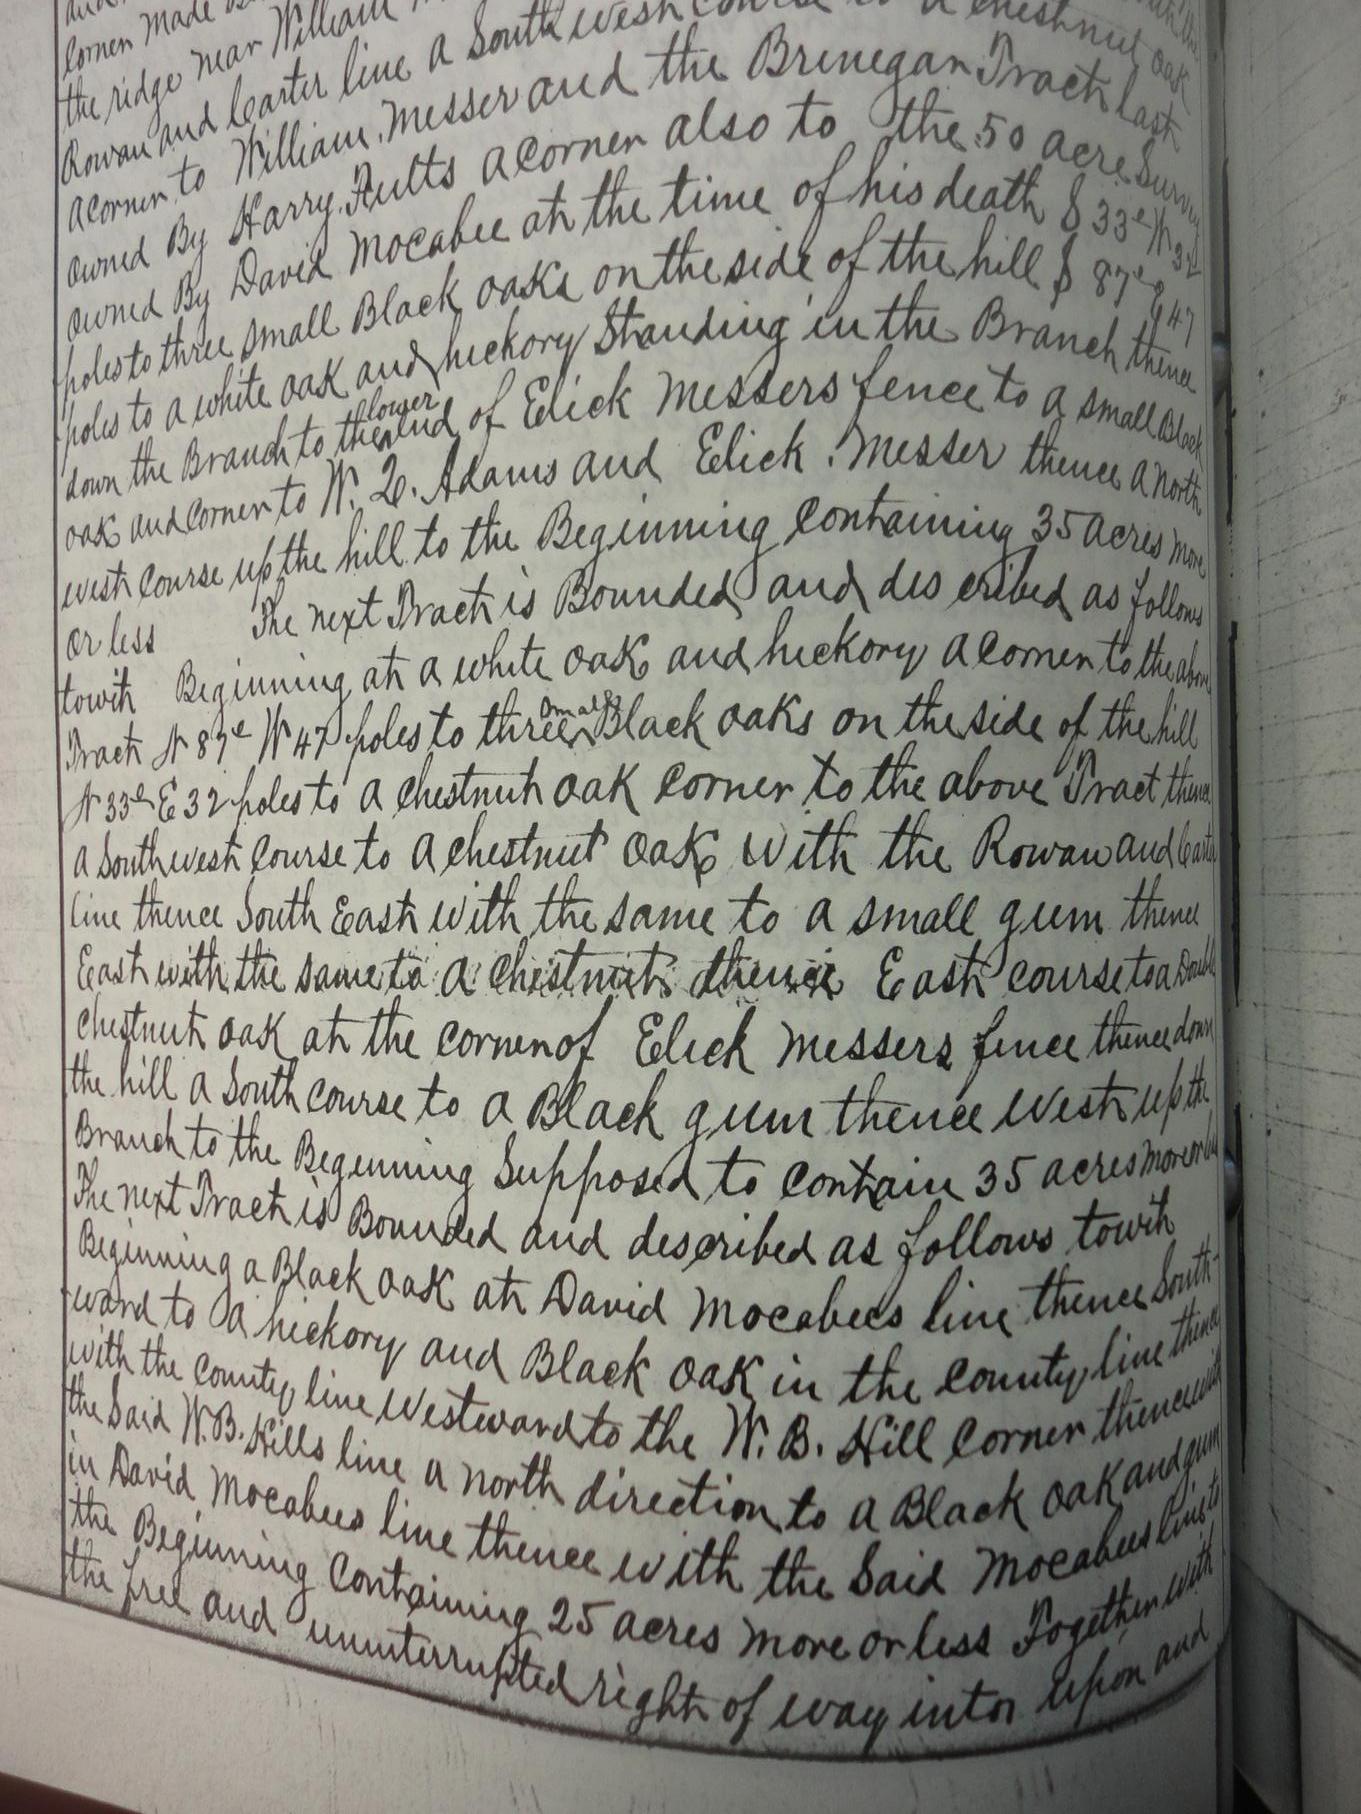 corner made
the ridge near William
Rowan and Carter line a South west course to a chestnut oak
a corner to William Messer and the Brinegar Tract last
owned By Harry Fults a corner also to the 50 acre Survey
owned By David Mocabee at the time of his death S 33° W 32
poles to three small Black oaks on the side of the hill S 87° E 47
poles to a white oak and hickory Standing in the Branch thence
down the Branch to the lower end of Elick Messers fence to a small Black
oak and corner to W. L. Adams and Elick Messer thence a North
west course up the hill to the Beginning Containing 35 acres more
or less The next Tract is Bounded and des cribed as follows
towit Beginning at a white oak and hickory a corner to the above
Tract N 87° W 47 poles to three small Black oaks on the side of the hill
N 33° E 32 poles to a chestnut oak corner to the above Tract thence
a South west Course to a chestnut oak with the Rowan and Carter
line thence South East with the same to a small gum thence
East with the same to a chestnut thence East course to a Double
chestnut oak at the corner of Elick Messers fence thence down
the hill a South course to a Black gum thence West up the
Branch to the Beginning Supposed to contain 35 acres more or less
The next Tract is Bounded and described as follows towit
Beginning a Black oak at David Mocabees line thence South-
ward to a hickory and Black oak in the county line thence
with the county line Westward to the W. B. Hill Corner thence with
the Said W. B. Hills line a north direction to a Black oak and gum
in David Mocabees line thence with the Said Mocabees line to
the Beginning Containing 25 acres more or less Together with
the free and uninterrupted right of way into upon and